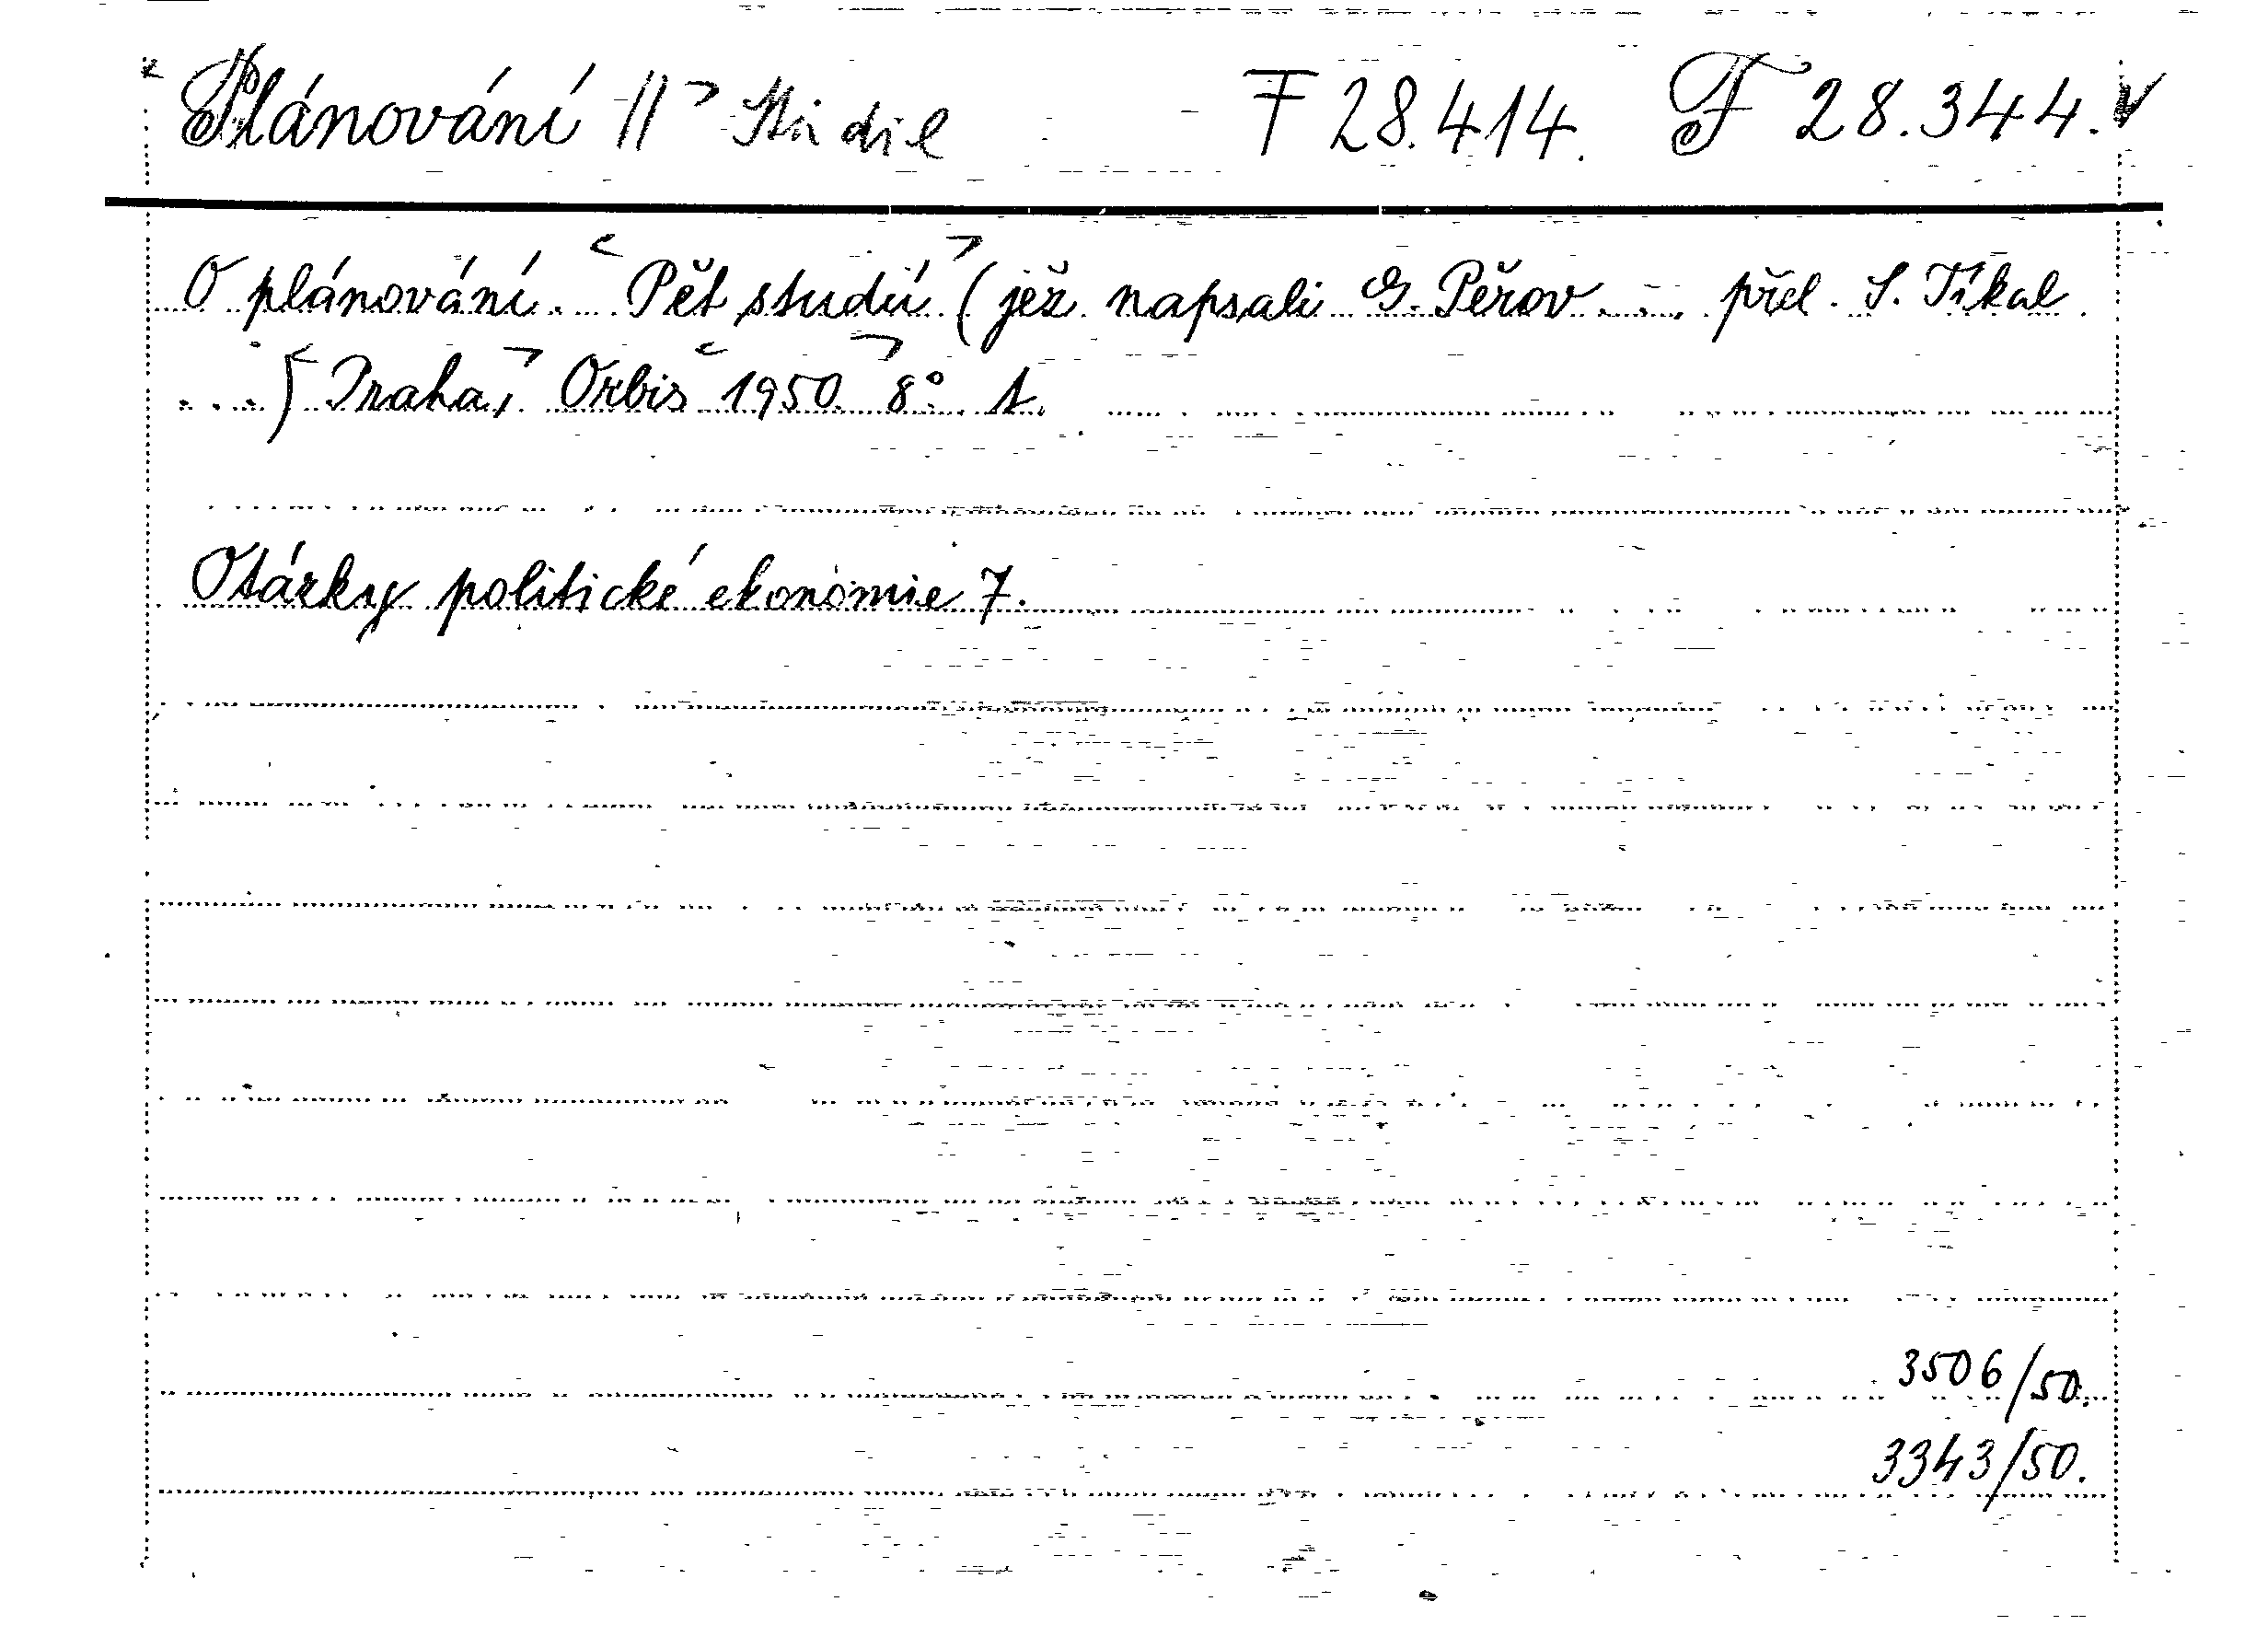 Plánování || Studie F 28.414. F 28.344.
O plánování. Pět studií (jež napsali G. Pěrov ... přel. S. Tikal
...) Praha, Orbis 1950 8° 1.
Otázky politické ekonomie 7.
3506/50.
3343/50.